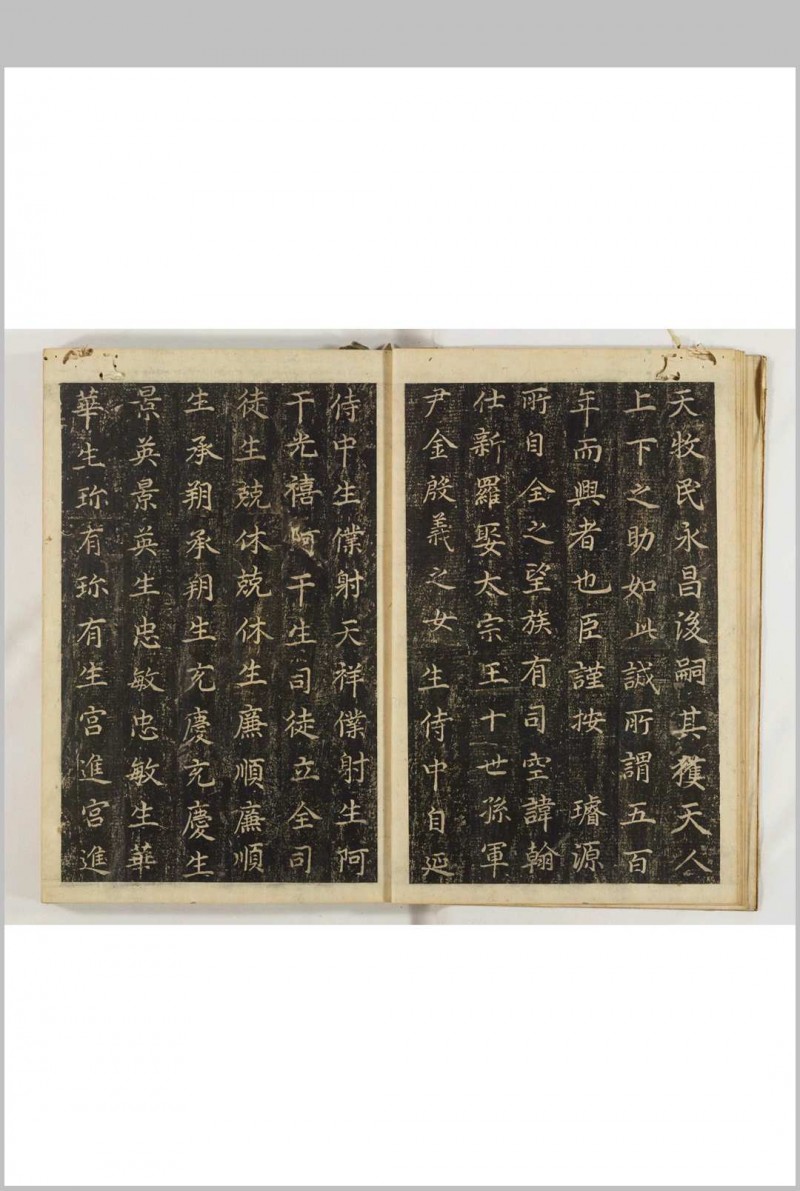 天牧民永昌後嗣其獲天人
上下之助如此誠所謂五百
年而興者也臣謹按　璿源
所自全之望族有司空諱翰
仕新羅娶太宗王十世孫軍
尹金殷義之女生侍中自延
侍中生僕射天祥僕射生阿
干光禧阿干生司徒立全司
徒生兢休兢休生廉順廉順
生承朔承朔生充慶充慶生
景英景英生忠敏忠敏生華
華生珎有珎有生宮進宮進